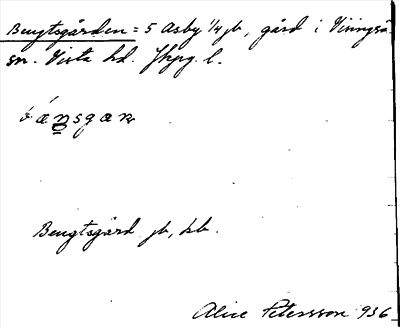 Bengtsgården = 5 Asby 1/4 jb, gård i Visingsö
sn. Vista hd. Jkpg l.
bæŋsgaɴ
Bengtsgård jb, kb.
Alice Petersson 936